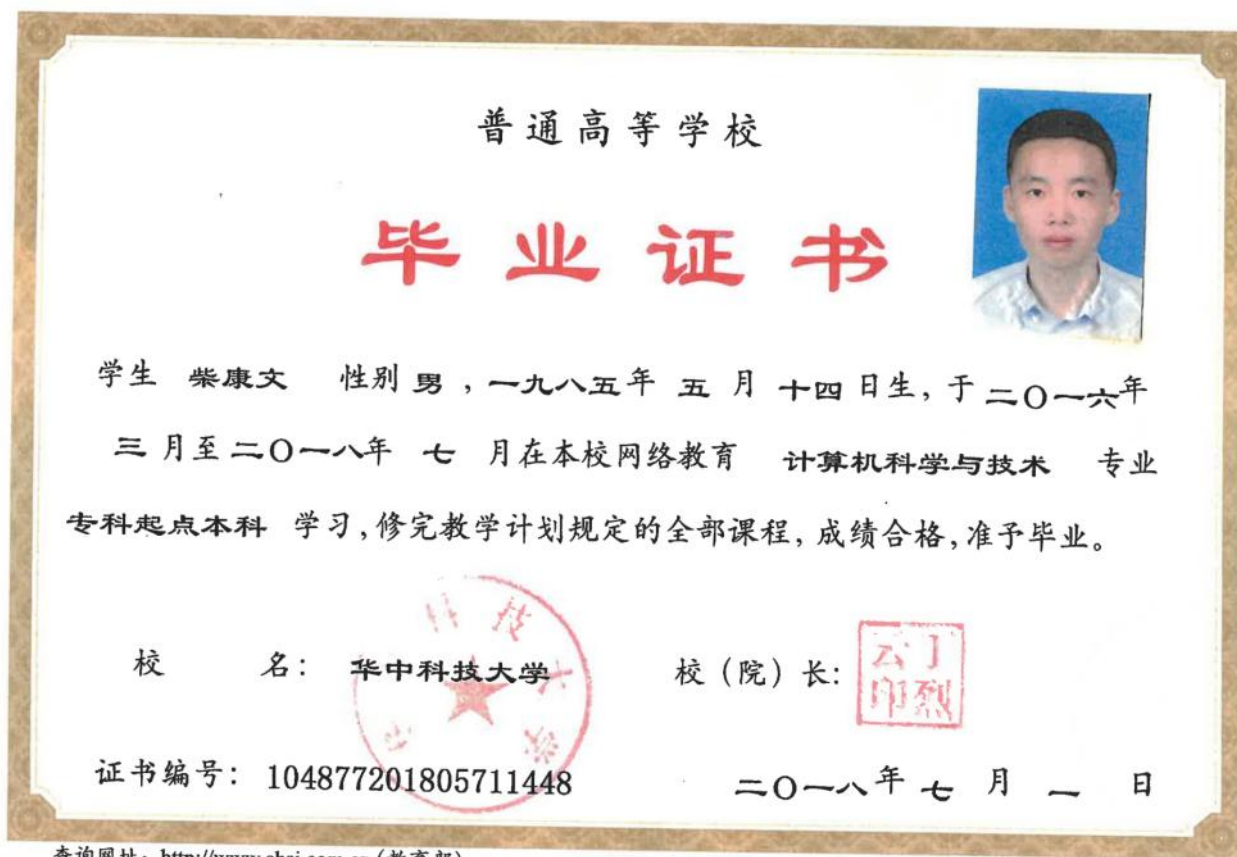 普通高等学校
毕业证书
学生 柴康文 性别 男 ，一九八五年 五 月 十四 日生，于 二〇一六年
三 月至 二〇一八年 七 月在本校网络教育 计算机科学与技术 专业
专科起点本科 学习，修完教学计划规定的全部课程，成绩合格，准予毕业。
校 名： 华中科技大学 校（院）长：
丁烈云印
证书编号： 104877201805711448 二〇一八年 七 月 一 日